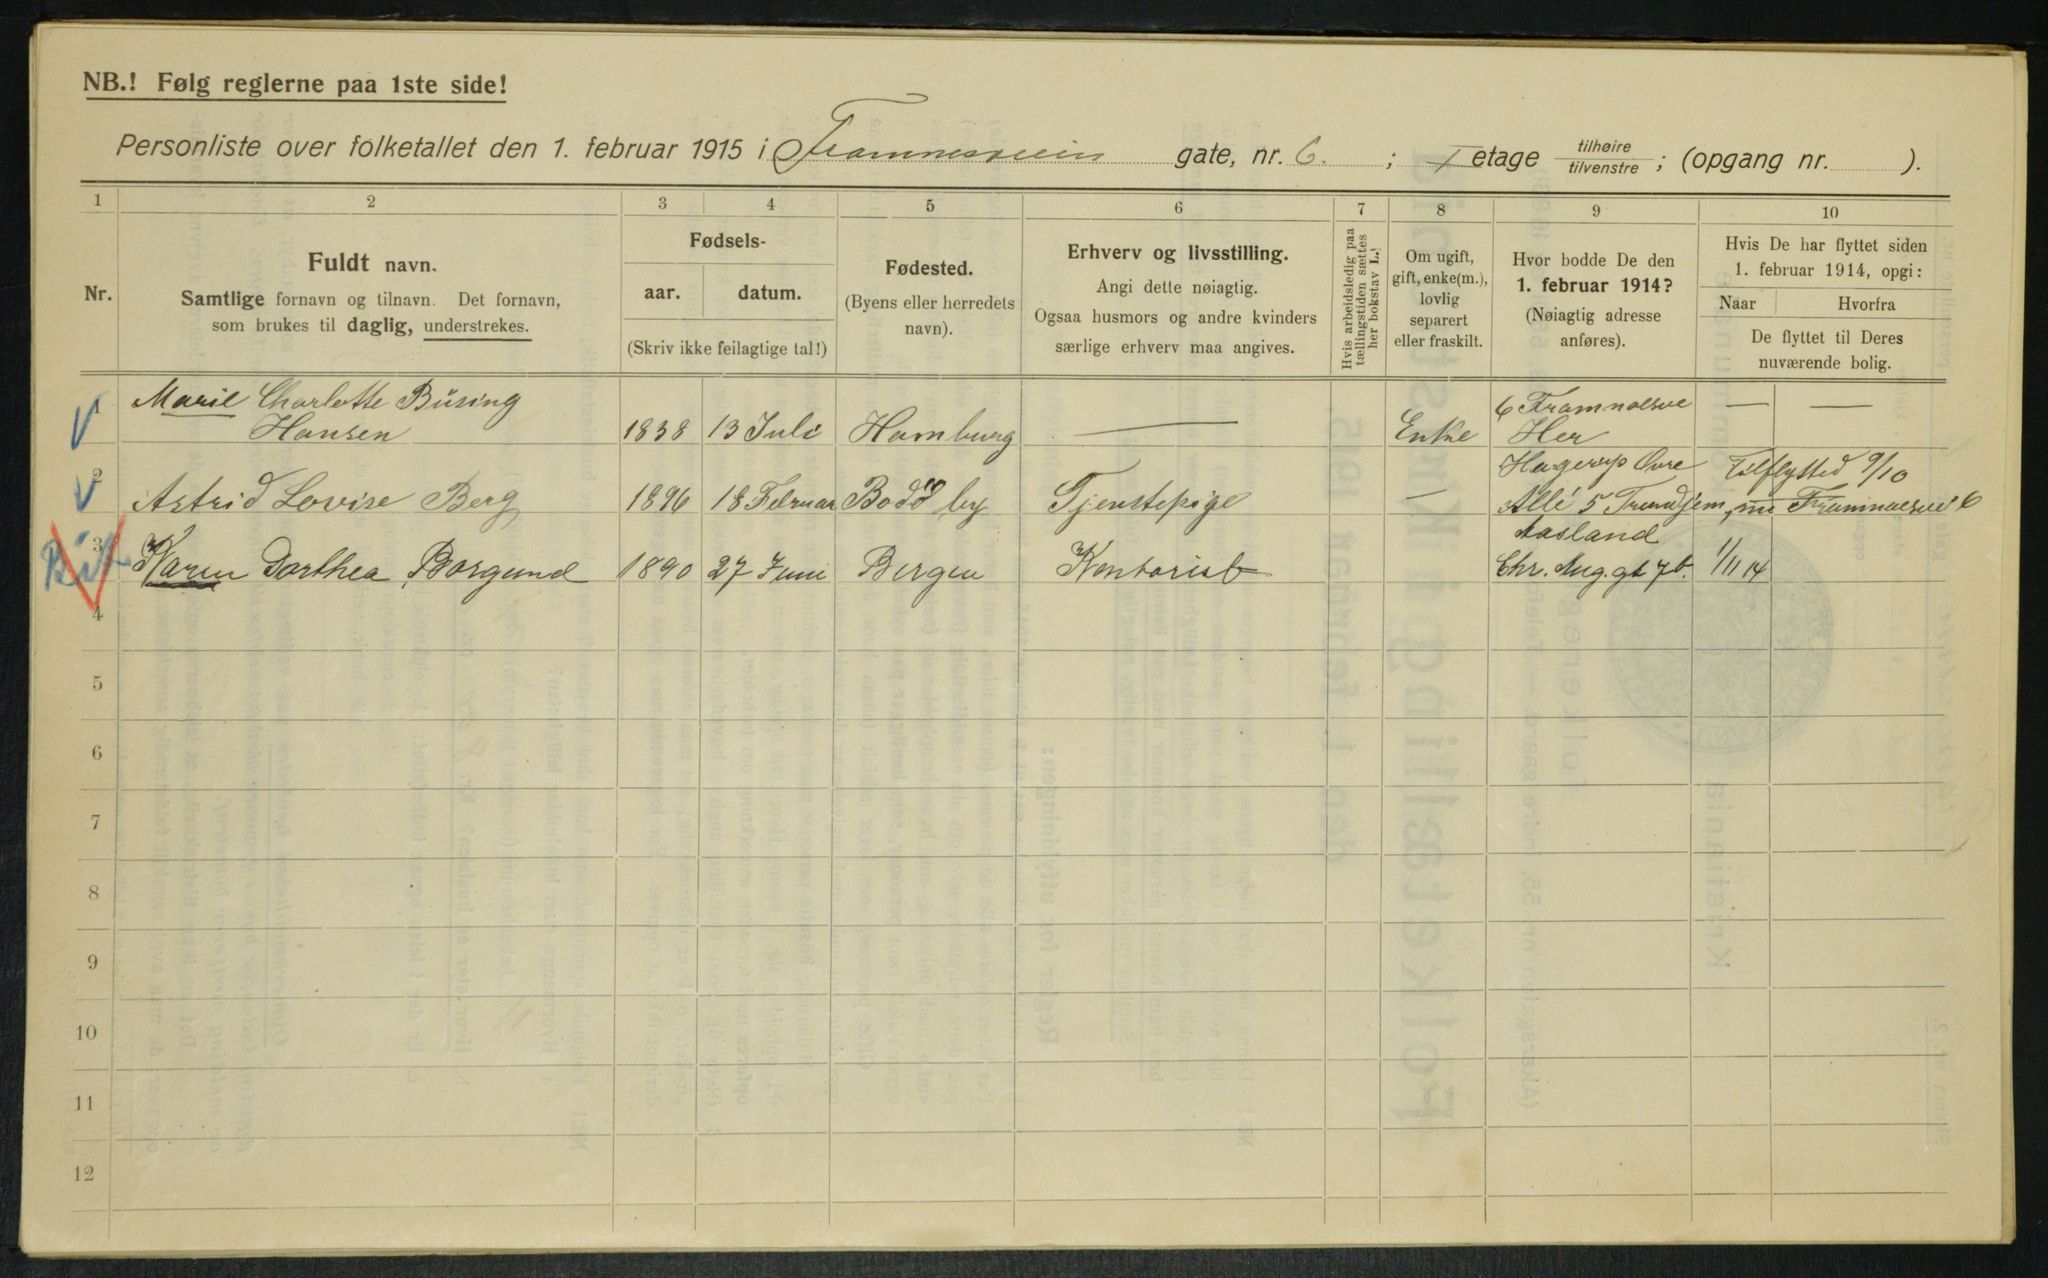 NB.! Følg reglerne paa 1ste side!
Personliste over folketallet den 1. februar 1915 i Framnesveien gate, nr. 6. ; I etage tilhøire tilvenstre ; (opgang nr. ).
1 2 3 4 5 6 7 8 9 10
Nr.
Fuldt navn.
Samtlige fornavn og tilnavn. Det fornavn,
som brukes til daglig, understrekes.
Fødsels-
aar. datum.
(Skriv ikke feilagtige tal!)
Fødested.
(Byens eller herredets
navn).
Erhverv og livsstilling.
Angi dette nøiagtig.
Ogsaa husmors og andre kvinders
særlige erhverv maa angives.
Hvis arbeidsledig paa
tællingstiden sættes
her bokstav L.!
Om ugift,
gift, enke(m.),
lovlig
separert
eller fraskilt.
Hvor bodde De den
1. februar 1914?
(Nøiagtig adresse
anføres).
Hvis De har flyttet siden
1. februar 1914, opgi:
Naar Hvorfra
De flyttet til Deres
nuværende bolig.
1 Marie Charlotte Büsing 6 Framnaesve — —
Hansen 1838 13 Juli Hamburg — Enke Her
2 Hagerup Øvre Tilflytted 9/10
Astrid Lovise Berg 1896 18 Februar Bodø by Tjenstepige — Allé 5 Trondjem, Framnaesvei 6
3 Aasland
Karen Dorthea Borgund 1890 27 Juni Bergen Kontorist Chr. Aug. gt 7b. 1/11 14
4
5
6
7
8
9
10
11
12